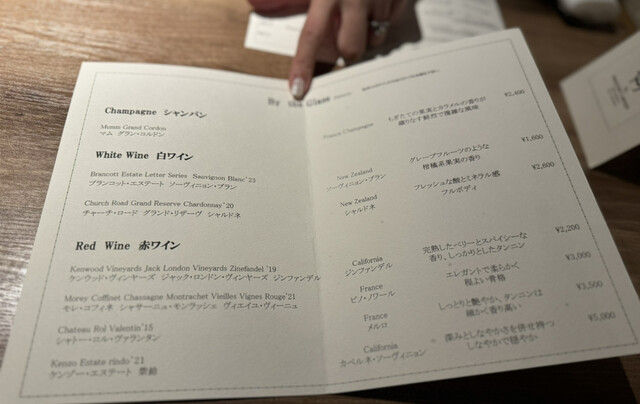 By the Glass
Champagne シャンパン
Mumm Grand Cordon
マム グラン・コルドン
France Champagne
もぎたての果実とカラメルの香りが
織りなす鮮烈で複雑な風味
¥2,400
White Wine 白ワイン
Brancott Estate Letter Series Sauvignon Blanc'23
ブランコット・エステート ソーヴィニョン・ブラン
New Zealand
ソーヴィニョン・ブラン
グレープフルーツのような
柑橘系果実の香り
¥1,800
Church Road Grand Reserve Chardonnay'20
チャーチ・ロード グランド・リザーヴ シャルドネ
New Zealand
シャルドネ
フレッシュな酸とミネラル感
フルボディ
¥2,600
Red Wine 赤ワイン
Kenwood Vineyards Jack London Vineyards Zinefandel '19
ケンウッド・ヴィンヤーズ ジャック・ロンドン・ヴィンヤーズ ジンファンデル
California
ジンファンデル
完熟したベリーとスパイシーな
香り、しっかりとしたタンニン
¥2,200
Morey Coffinet Chassagne Montrachet Vieilles Vignes Rouge'21
モレ・コフィネ シャサーニュ・モンラッシェ ヴィエイユ・ヴィーニュ
France
ピノ・ノワール
エレガントで柔らかく
程よい骨格
¥3,000
Chateau Rol Valentin'15
シャトー・ロル・ヴァランタン
France
メルロ
しっとりと艶やか、タンニンは
細かく香り高い
¥3,500
Kenzo Estate rindo'21
ケンゾー・エステート 紫鈴
California
カベルネ・ソーヴィニョン
深みとしなやかさを併せ持つ
しなやかで穏やか
¥5,000